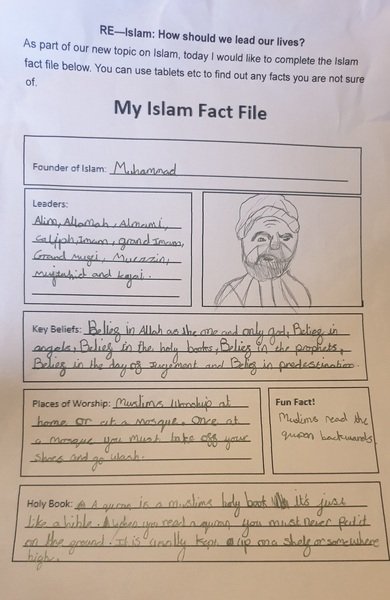 RE—Islam: How should we lead our lives?
As part of our new topic on Islam, today I would like to complete the Islam
fact file below. You can use tablets etc to find out any facts you are not sure
of.
My Islam Fact File
Founder of Islam: Muhammad
Leaders:
Alim, Allamah,
Caliph, Imam, grand Imam,
Grand Mufti, Muezzin,
Mujtahid and
Key Beliefs: Belief in Allah as the one and only god, Belief in
angels, Belief in the holy books, Belief in the prophets,
Belief in the day of and Belief in predestination.
Places of Worship: Muslims Worship at
home or at a mosque. Once at
a mosque you must take off your
shoes and go wash.
Fun Fact!
Muslims read the
backwards
Holy Book: A quran is a muslims holy book It's just
like a bible. When you read a quran you must never put it
on the ground. It is usually kept up on a shelf or somewhere
high.